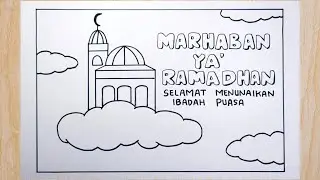 MARHABAN
YA'
RAMADHAN
SELAMAT MENUNAIKAN
IBADAH PUASA